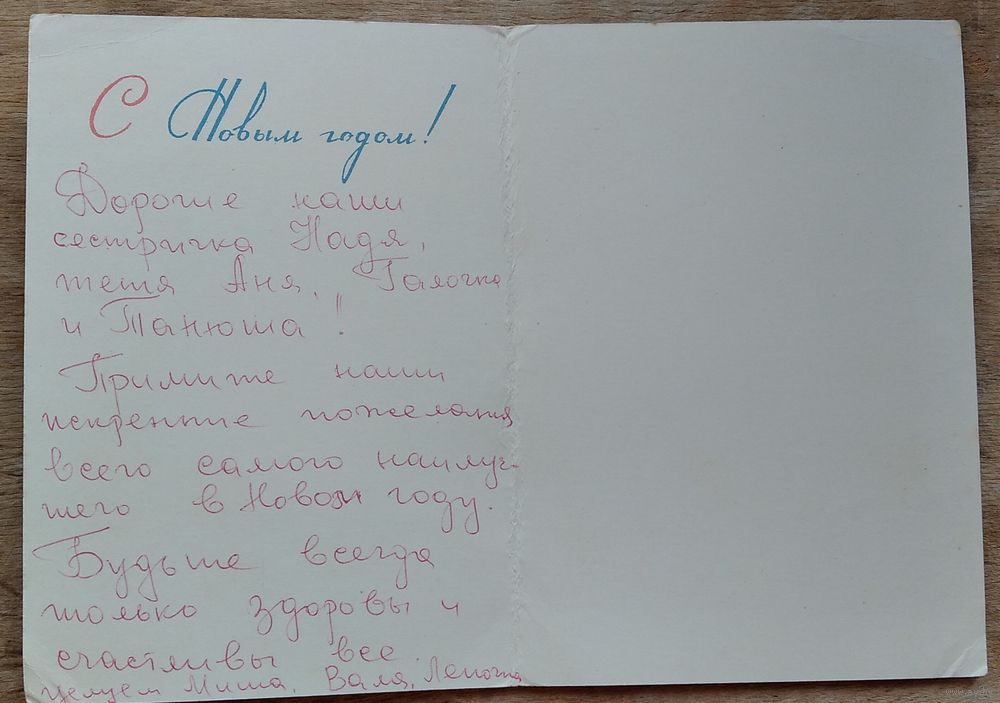 С Новым годом!
Дорогие наши
сестричка Надя,
тетя Аня, Галочка
и Танюша!
Примите наши
искренние пожелания
всего самого наилуч-
шего в Новом году.
Будьте всегда
только здоровы и
счастливы все.
Целуем Миша, Валя, Леночка